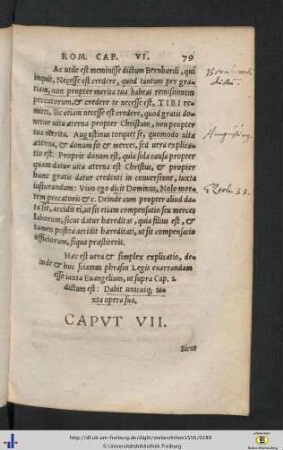 ROM. CAP. VI. 79
Ac utile est meminisse dictum Bernhardi, qui
inquit, Necesse est credere, quod tantum per gra
tiam, non propter merita tua habeas remissionem
peccatorum, & credere te necesse est, TIBI re
mitti, Sic etiam necesse est credere, quod gratis do
netur uita aeterna propter Christum, non propter
tua merita. Augustinus torquet se, quomodo uita
aeterna, & donum sit & merces, sed uera explicatio
est: Proprie donum est, quia sola causa propter
quam datur uita aeterna est Christus, & propter
hunc gratis datur credenti in conuersione, iuxta
iusiurandum: Viuo ego dicit Dominus, Nolo mor
tem peccatoris &c. Deinde cum propter aliud da
ta sit, accidit ei, ut sit etiam compensatio seu merces
laborum, sicut datur haereditas, quia filius est, &
tamen postea accidit haereditati, ut sit compensatio
officiorum, si qua praestiterit.
Haec est uera & simplex explicatio, de
inde & hoc sciamus phrasin Legis enarrandam
esse iuxta Euangelium, ut supra Cap. 2.
dictum est: Dabit unicuiq; iu-
xta opera sua.
CAPVT VII.
Sicut
http://dl.ub.uni-freiburg.de/diglit/melanchthon1556/0280
© Universitätsbibliothek Freiburg